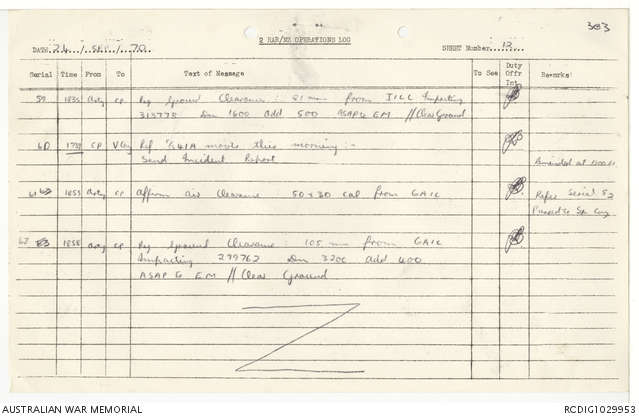 383
2 RAR/NZ OPERATIONS LOG
DATE 24 / SEP / 70 SHEET Number 12
Serial Time From To Text of Message To See Duty Offr Int. Remarks
59 1835 Arty CP Req Ground Clearance : 81 mm from Impacting
313775 Dn 1600 add 500 ASAP G EM // Clear Ground
60 CP V Coy Ref move this morning :-
Send Incident Report
61 1853 Arty CP Affirm air Clearance 50 x 30 cal from Refer Serial 52
Passed to Coy
62 1858 Arty CP Req Ground Clearance : 105 mm from
Impacting 299762 Dn 3200 add 400
ASAP G EM // Clear Ground
AUSTRALIAN WAR MEMORIAL RCDIG1029953